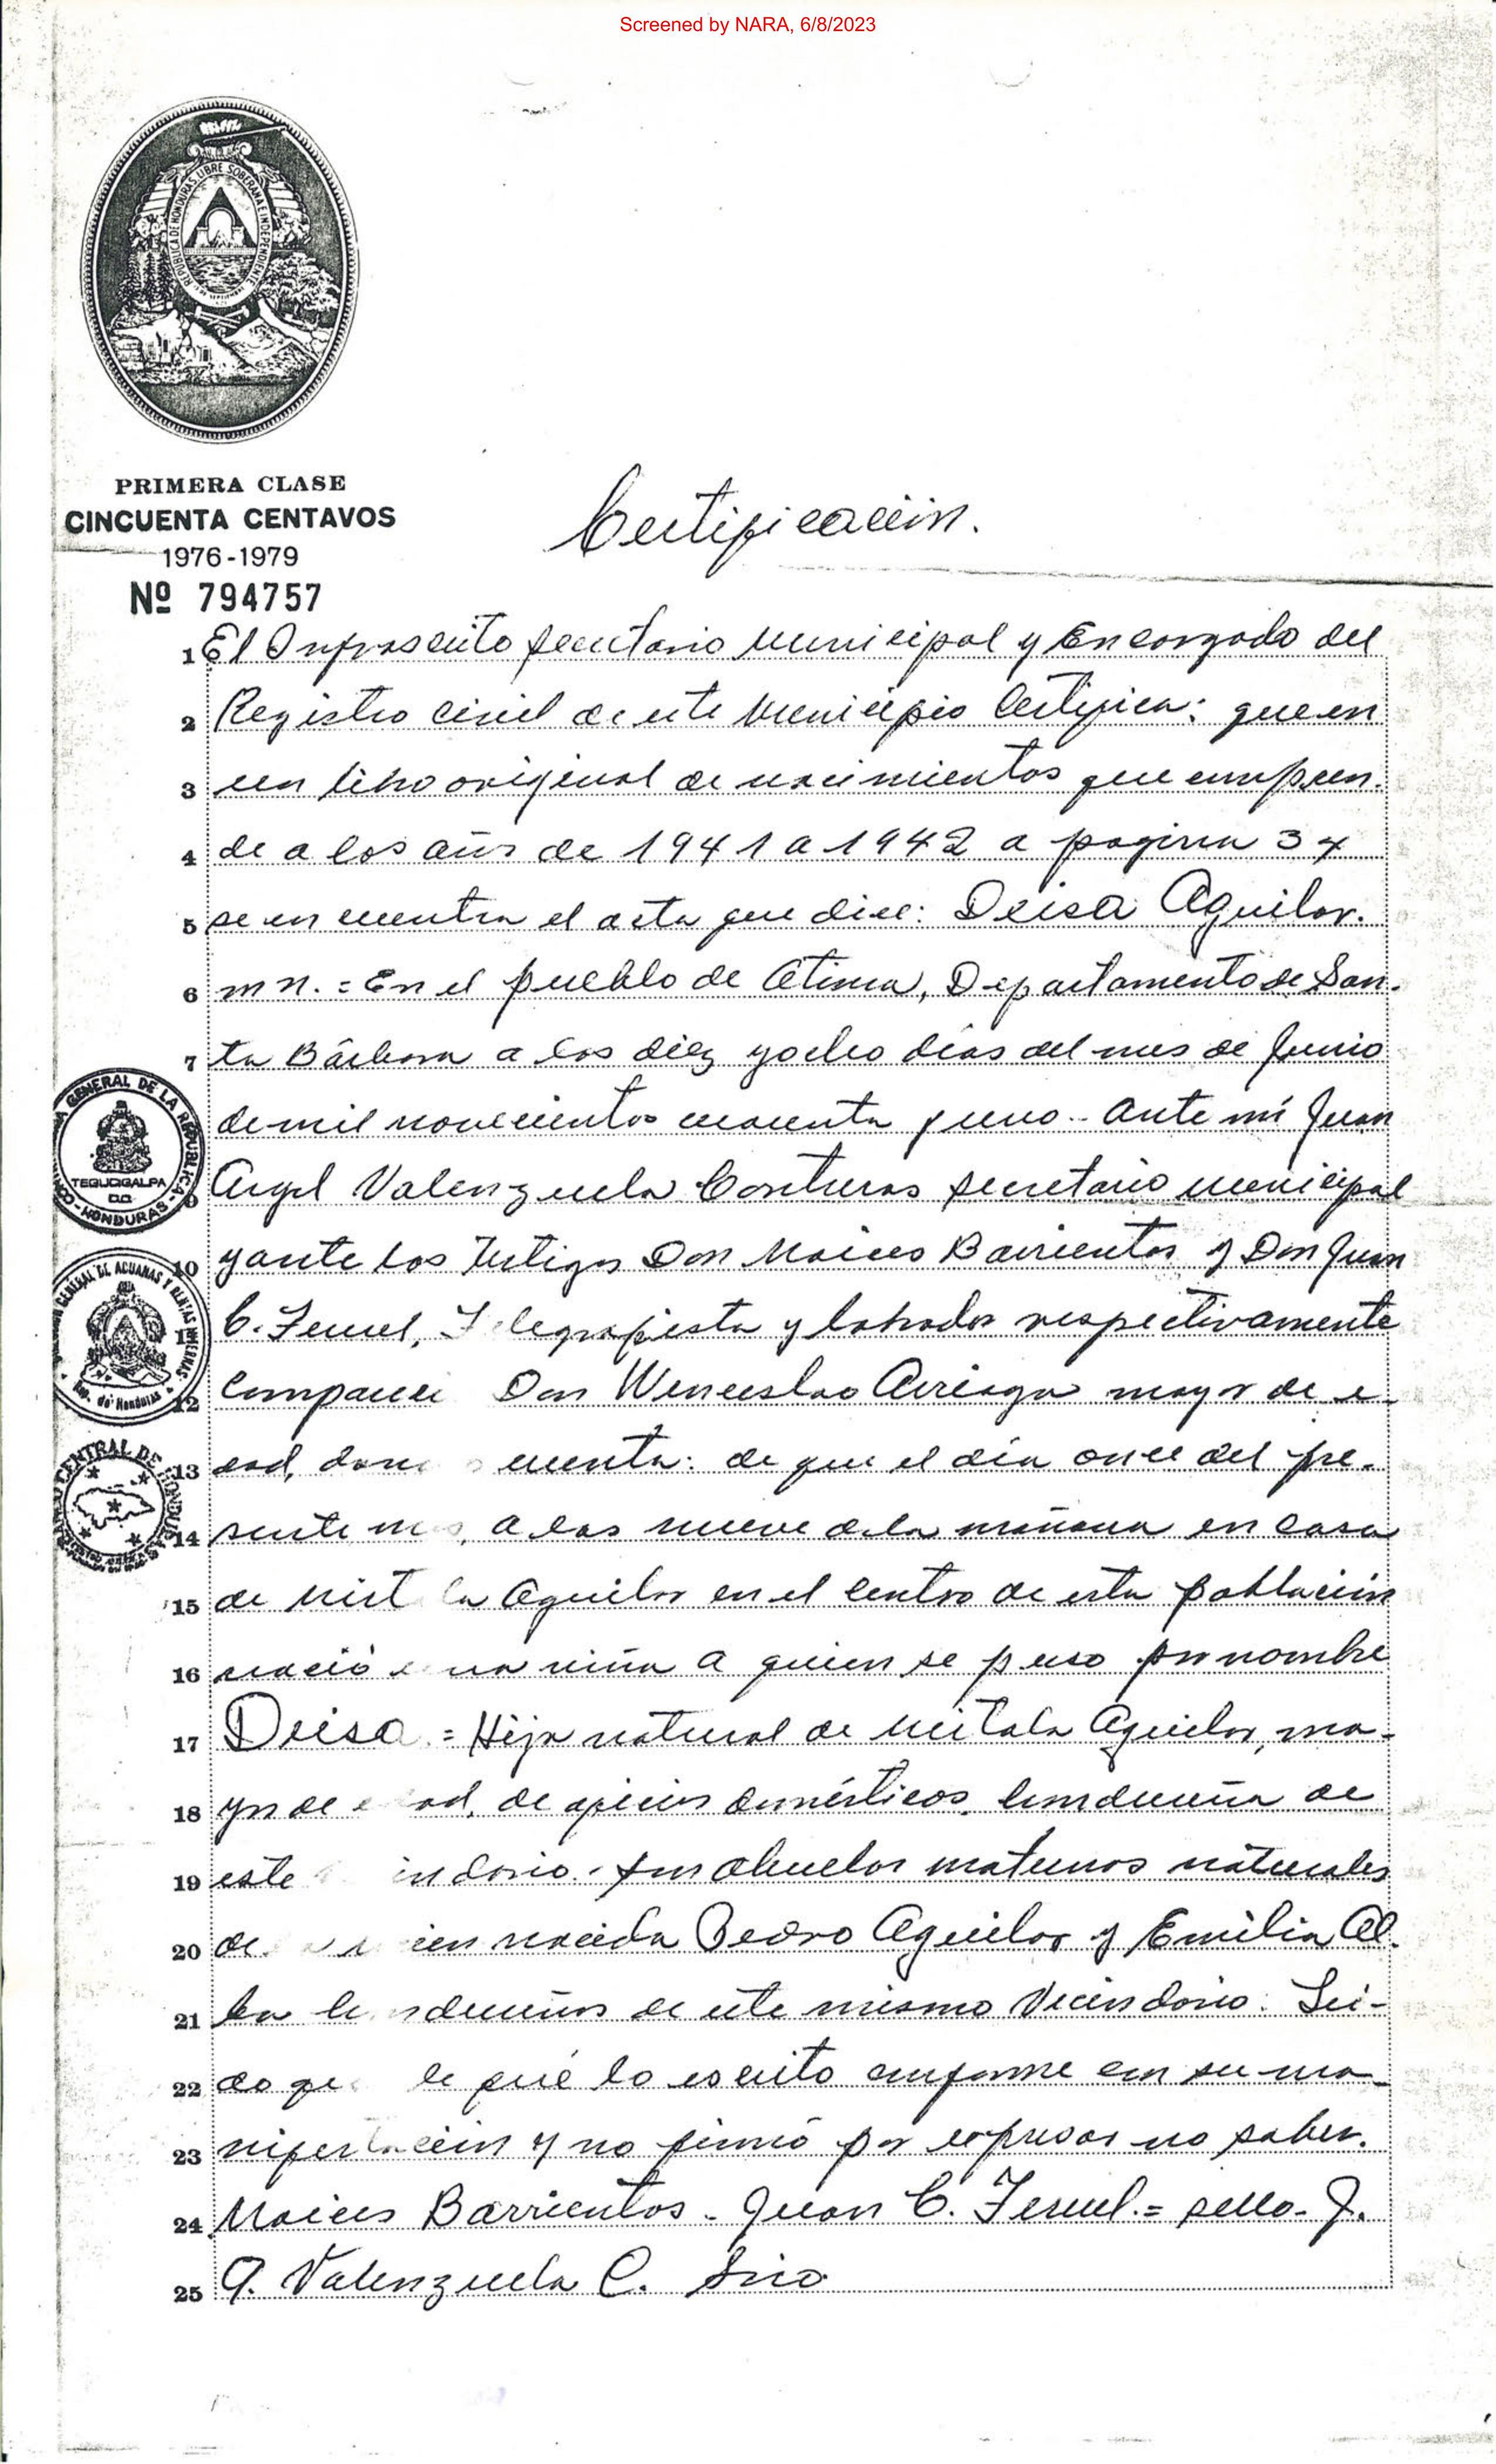 Screened by NARA, 6/8/2023
REPUBLICA DE HONDURAS, LIBRE SOBERANA E INDEPENDIENTE
PRIMERA CLASE
CINCUENTA CENTAVOS
1976-1979
Nº 794757
Certificación.
1 El Infrascrito Secretario Municipal y Encargado del
2 Registro Civil de este Municipio Certifica: que en
3 un libro original de nacimientos que compren-
4 de a los años de 1941 a 1942 a pagina 34
5 se encuentra el acta que dice: Deisa Aguilar.
6 m n. = En el pueblo de Atima, Departamento de San-
7 ta Bárbara a los diez y ocho dias del mes de Junio
de mil novecientos cuarenta y uno.- Ante mí Juan
Angel Valenzuela Contreras Secretario municipal
10 y ante los testigos Don Moices Barrientos y Don Juan
11 C. Teruel, Telegrafista y labrador respectivamente
12 Compareci Don Wenceslao Arriaga mayor de e-
13 dad, dan cuenta: de que el día once del pre-
14 sente mes, a las nueve de la mañana en casa
15 de Mist la Aguilar en el centro de esta población
16 nació una niña a quien se puso por nombre
17 Deisa = Hija natural de Mitala Aguilar, ma-
18 yor de edad, de oficios domésticos, hondureña de
19 este indario. Son abuelos maternos naturales
20 de ien nacida Pedro Aguilar y Emilia Al-
21 ba hondureños de este mismo Vecindario. Leí-
22 do que le fué lo escrito conforme con su ma-
23 nifestación y no firmó por expresar no saber.
24 Moices Barrientos - Juan C. Teruel. = sello - J.
25 A. Valenzuela C. Srio
GENERAL DE LA REPUBLICA
TEGUCIGALPA
D.C.
HONDURAS
GENERAL DE ADUANAS Y RENTAS INTERNAS
Rep. de Honduras
CENTRAL DE HONDURAS